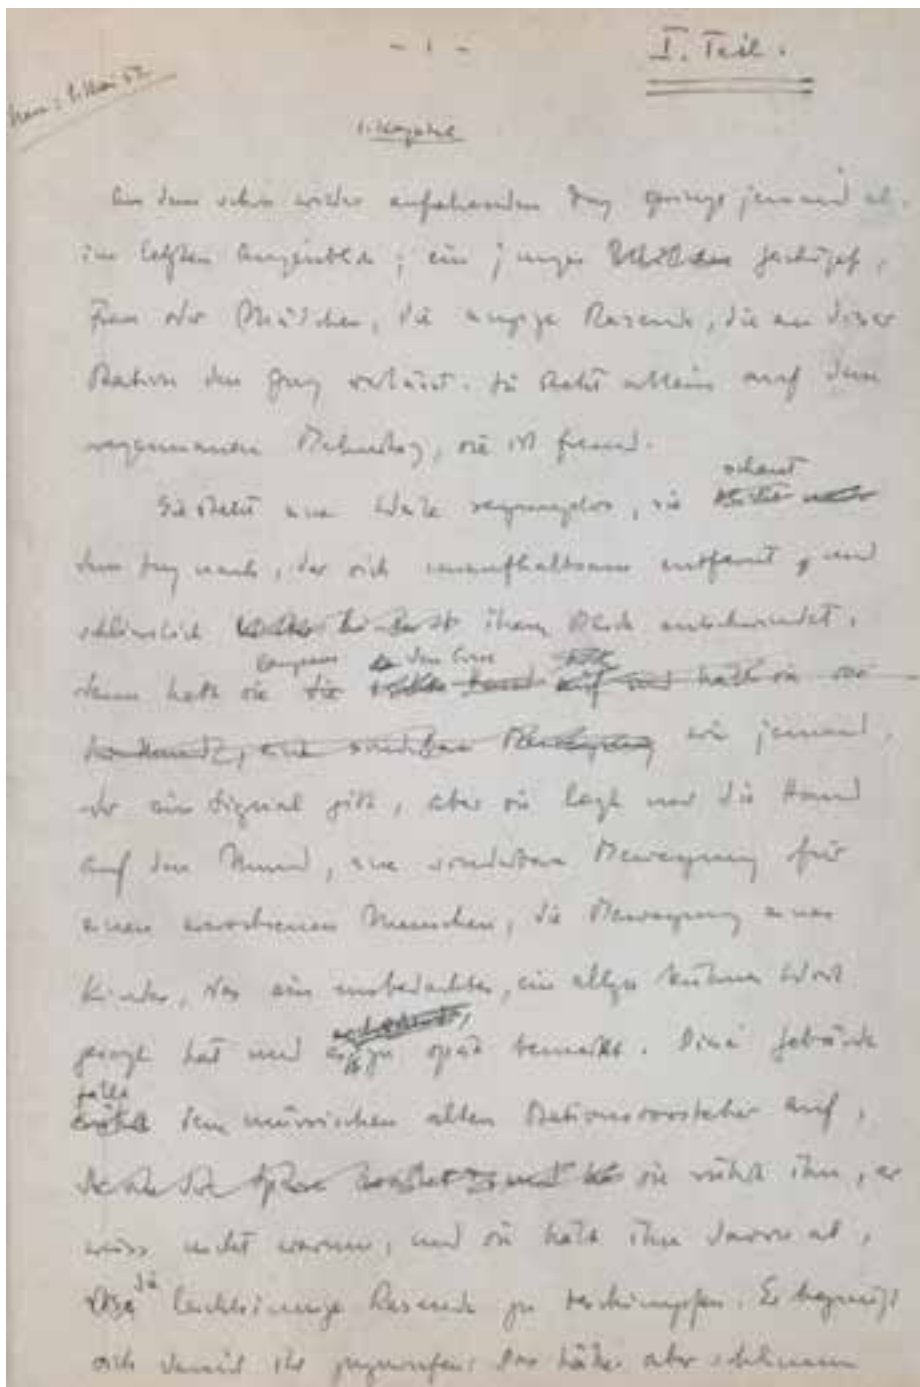 - 1 -
I. Teil.
1. Kapitel
Aus dem schon wieder anfahrenden Zug springt jemand ab
im letzten Augenblick; ein junges Geschöpf,
Frau oder Mädchen, die einzige Reisende, die an dieser
Station den Zug verlässt. Sie steht allein auf dem
Bahnsteig, sie ist fremd.
Sie steht eine Weile regungslos, sie schaut
dem Zug nach, der sich unaufhaltsam entfernt, und
schliesslich ihrem Blick entschwindet,
dann hebt sie die
wie jemand,
der ein Signal gibt, aber sie legt nur die Hand
auf den Mund, eine sonderbare Bewegung für
einen erwachsenen Menschen, die Bewegung eines
Kindes, das ein unbedachtes, ein allzu kühnes Wort
gesagt hat und es zu spät bemerkt. Diese Gebärde
fällt dem mürrischen alten Stationsvorsteher auf,
sie rührt ihn, er
weiss nicht warum, und sie hält ihn davon ab,
die leichtsinnige Reisende zu beschimpfen. Er begnügt
sich damit ihr zuzurufen: Das hätte aber schlimm